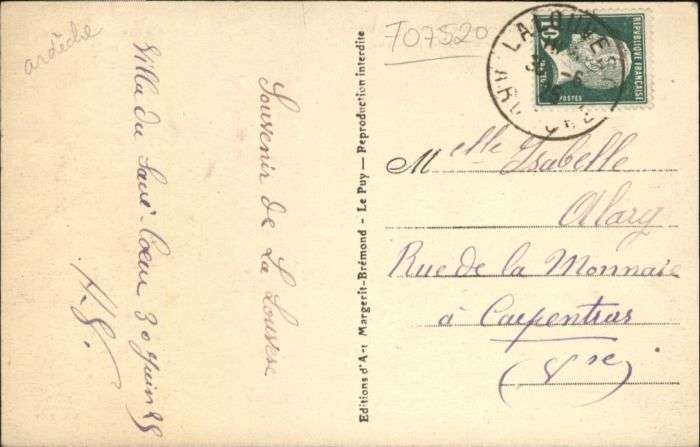 ardèche
Villa du Sacré-Cœur 30 Juin 25
H. G.
Souvenir de La Louvesc
Editions d'A-t Margerit-Brémond - Le Puy — Reproduction interdite
T07520
LALOUVESC
ARDECHE
10
POSTES
REPUBLIQUE FRANÇAISE
Melle Isabelle
Alary
Rue de la Monnaie
à Carpentras
(Vse)